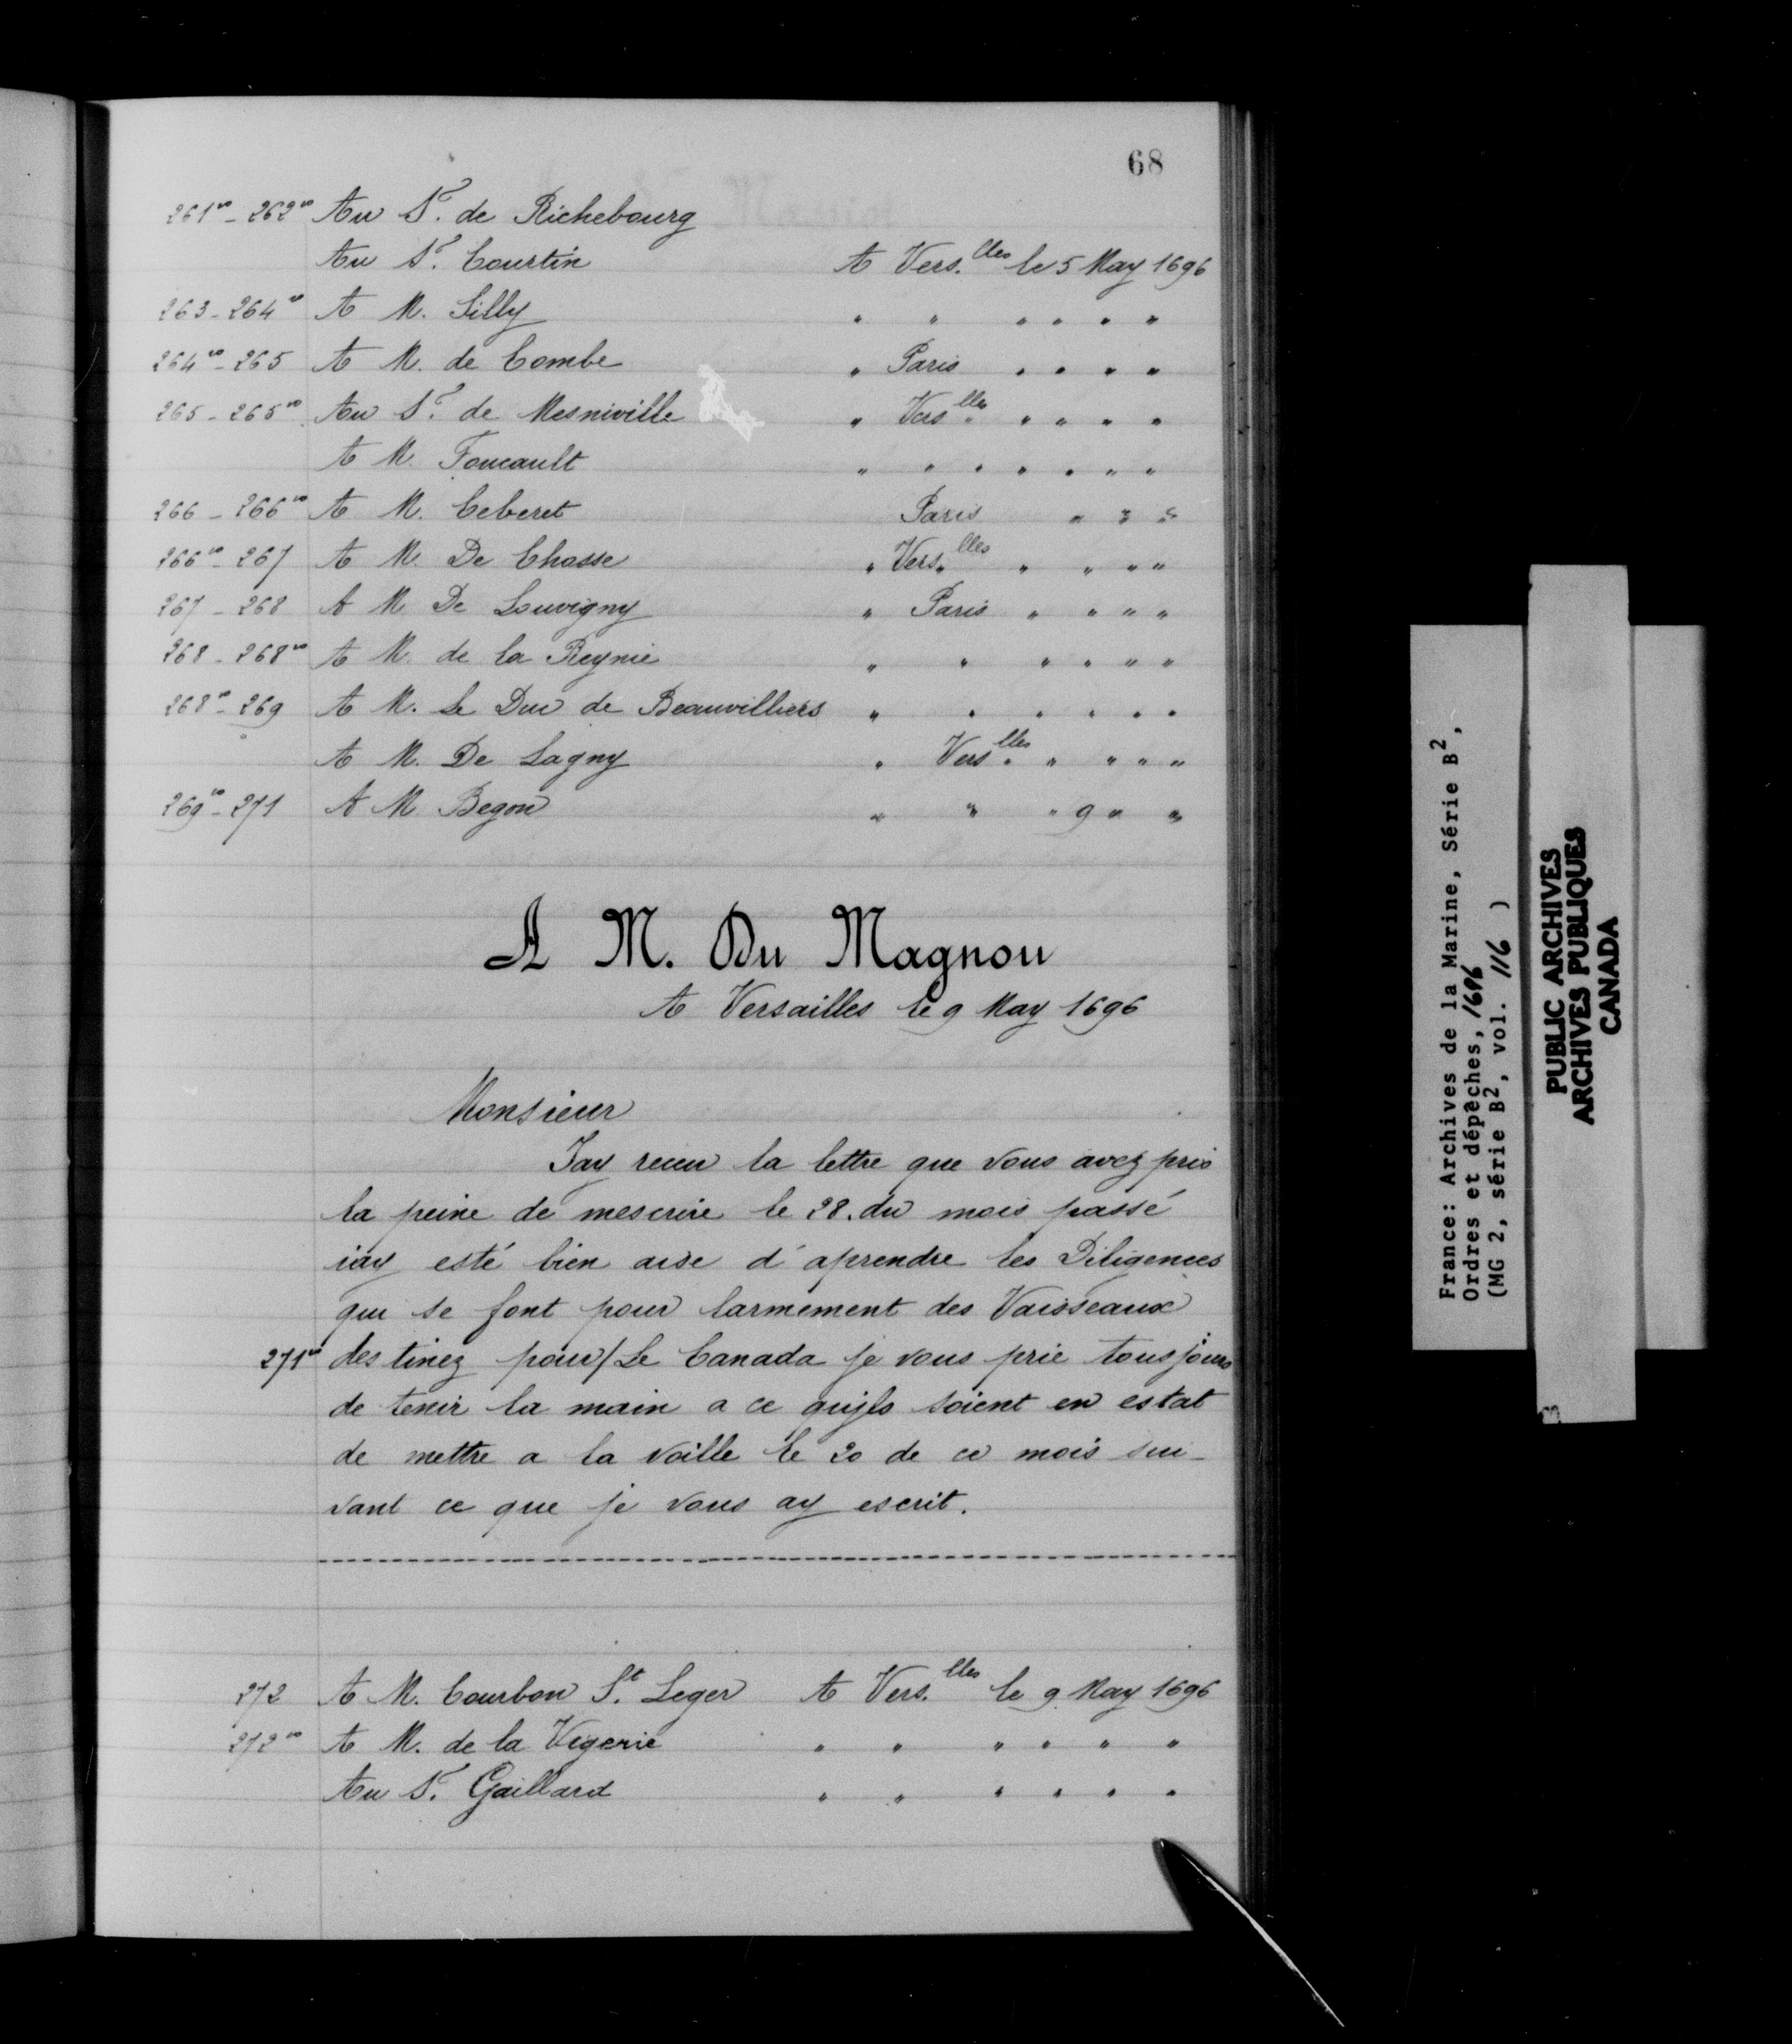 68
261vo - 262vo Au Sr. de Richebourg
Au Sr. Courtin A Vers.lles le 5 May 1696
263 - 264vo A M. Silly " " " " " "
264vo - 265 A M. de Combe " Paris " " " "
265 - 265vo Au Sr. de Mesniville " Verslles " " " "
A M. Foucault " " " " " " "
266 - 266vo A M. Ceberet Paris " " "
266vo - 267 A M. De Chasse " Vers.lles " " " "
267 - 268 A M. De Louvigny " Paris " " " "
268 - 268vo A M. de la Reynie " " " " " "
268vo - 269 A M. Le Duc de Beauvilliers " " " " " "
A M. De Lagny " Verslles " " " "
269vo - 271 A M. Begon " " " 9 " "
A M. Du Magnou
A Versailles le 9 May 1696
Monsieur
Jay receu la lettre que vous avez pris
la peine de mescrire le 28. du mois passé
iay esté bien aise d'aprendre les Diligences
qui se font pour larmement des Vaisseaux
271vo destinez pour/Le Canada je vous prie tousjours
de tenir la main a ce quils soient en estat
de mettre a la voille le 20 de ce mois sui-
vant ce que je vous ay escrit.
272 A M. Courbon St. Leger A Vers.lles le 9 May 1696
272vo A M. de la Vigerie " " " " " "
Au Sr. Gaillard " " " " " "
France: Archives de la Marine, Série B2,
Ordres et dépêches, 1696
(MG 2, série B2, vol. 116 )
PUBLIC ARCHIVES
ARCHIVES PUBLIQUES
CANADA